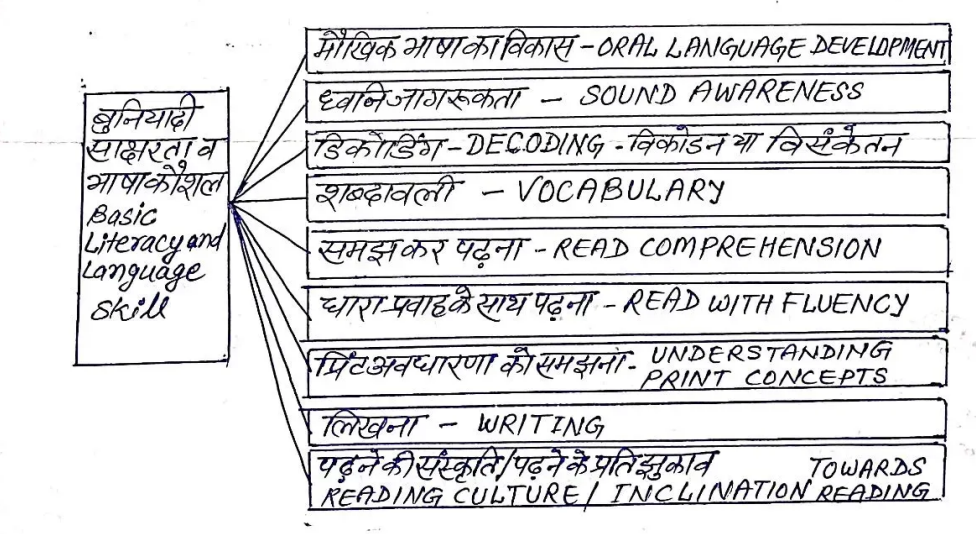 बुनियादी
साक्षरता व
भाषा कौशल
Basic
Literacy and
Language
Skill
मौखिक भाषा का विकास - ORAL LANGUAGE DEVELOPMENT
ध्वनि जागरूकता - SOUND AWARENESS
डिकोडिंग - DECODING - विकोडन या विसंकेतन
शब्दावली - VOCABULARY
समझकर पढ़ना - READ COMPREHENSION
धारा प्रवाह के साथ पढ़ना - READ WITH FLUENCY
प्रिंट अवधारणा को समझना - UNDERSTANDING
PRINT CONCEPTS
लिखना - WRITING
पढ़ने की संस्कृति/पढ़ने के प्रति झुकाव TOWARDS
READING CULTURE/ INCLINATION READING